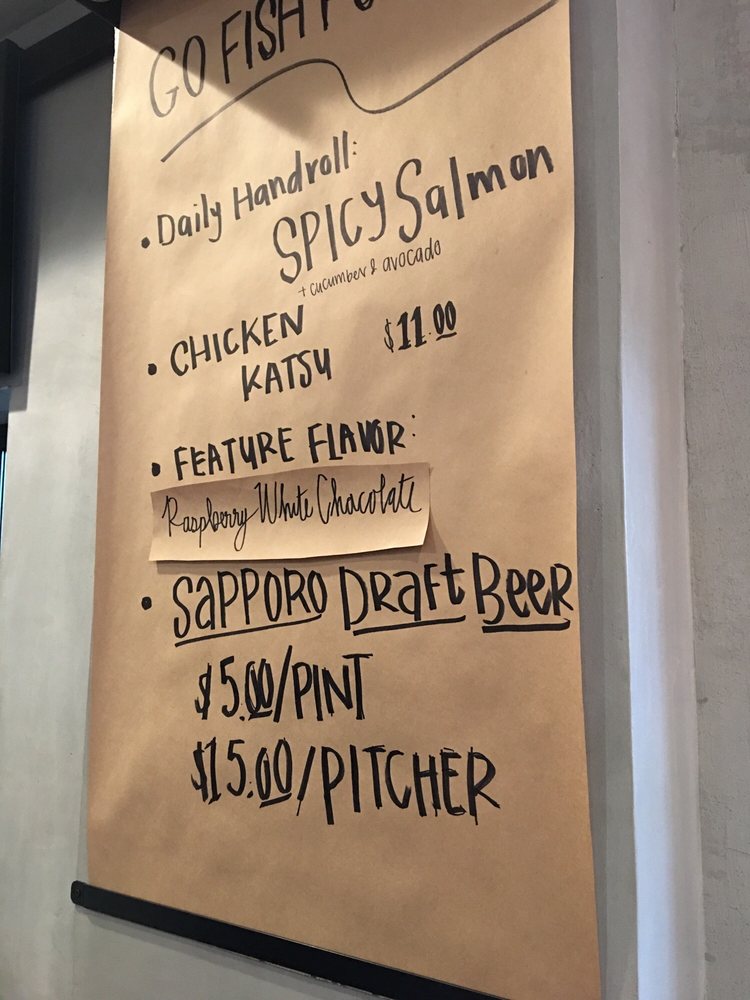 GO FISH
• Daily Handroll:
SPICY Salmon
+ cucumber & avocado
• CHICKEN
KATSU $11.00
• FEATURE FLAVOR:
Raspberry White Chocolate
• SAPPORO DRAFT BEER
$5.00/PINT
$15.00/PITCHER